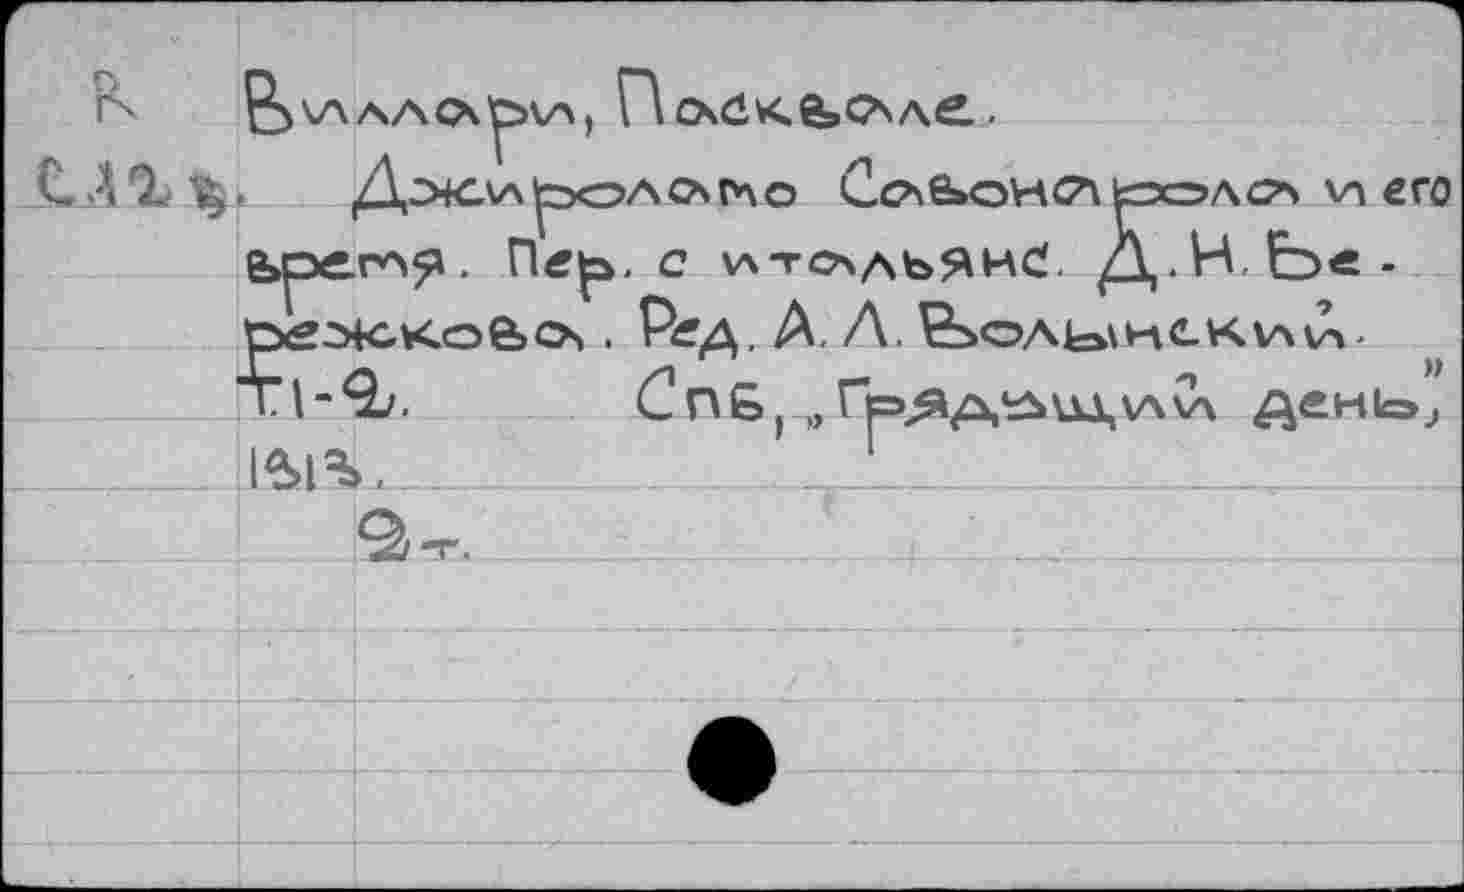 R Виллари, Пасквале.
С.12 в. Джироламо Савонарола и его
время. Пер. с итальянс. Д.Н. Бе-
режкова. Ред. А.Л. Волынский.
Т.1-2. Спб, „Грядущий день",
1913.
2т.